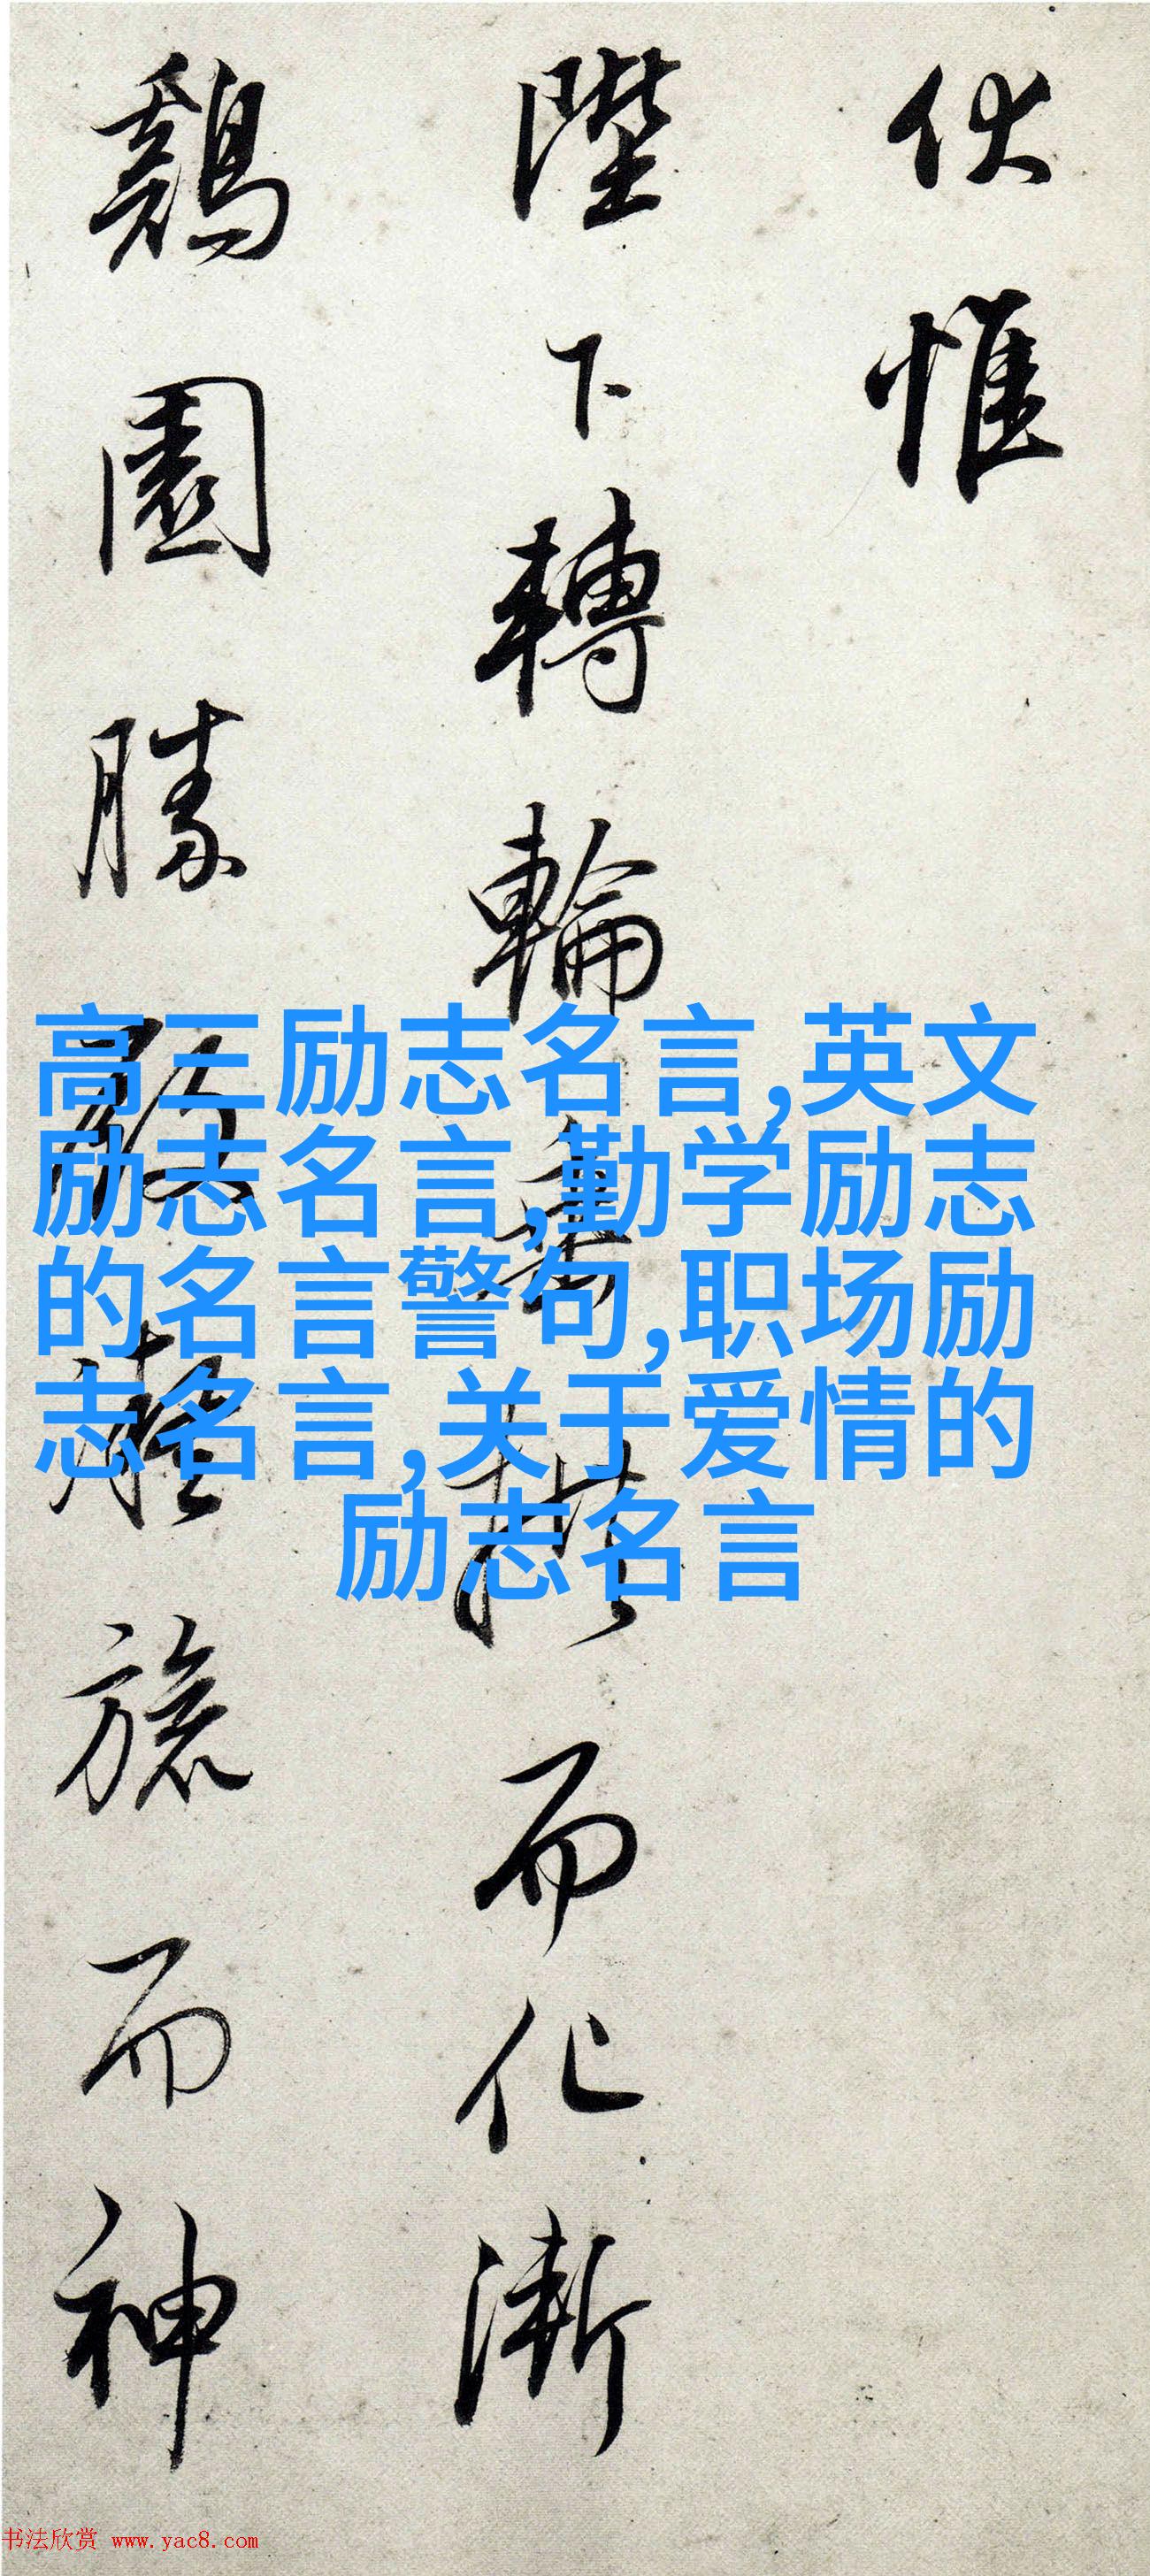 伏惟
陛下轉輪垂拱而化漸
鷄園勝殿莊旒而神
高三励志名言,英文
励志名言,勤学励志
的名言警句,职场励
志名言,关于爱情的
励志名言
书法欣赏 www.yac8.com